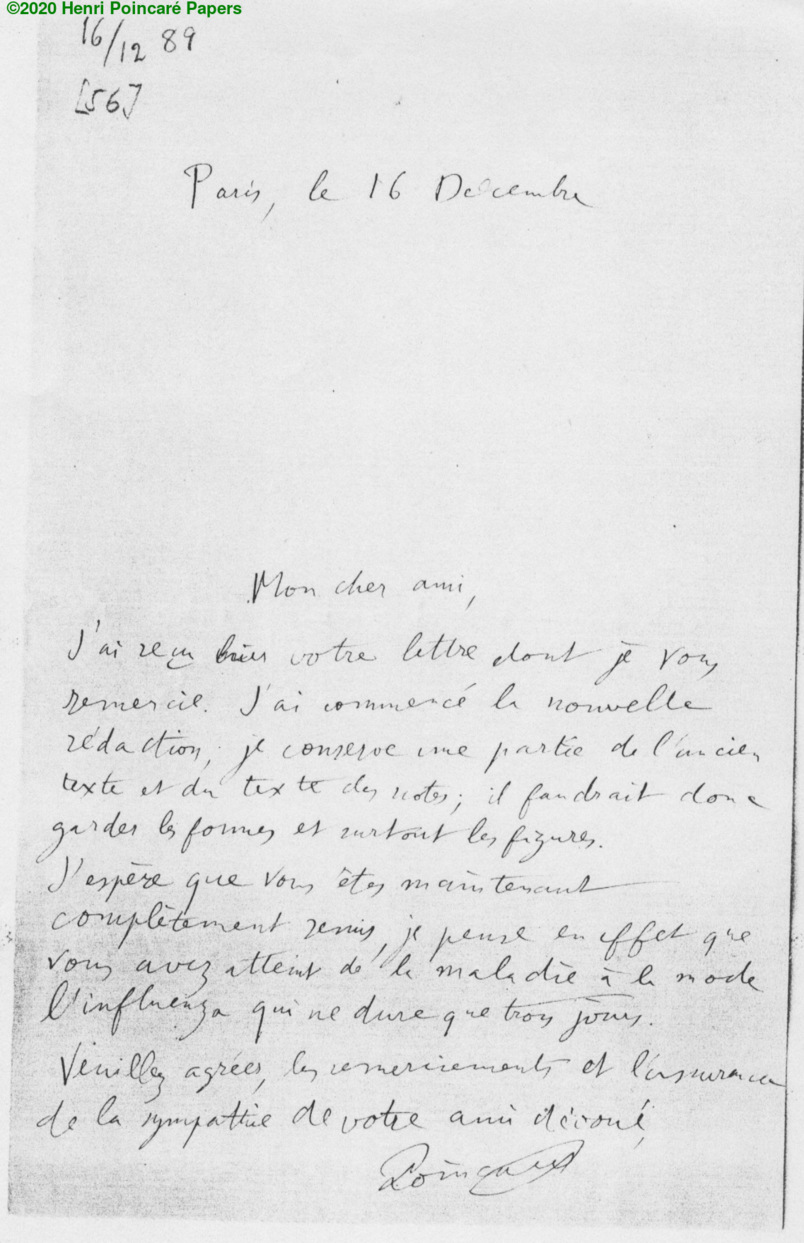 ©2020 Henri Poincaré Papers
16/12 89
[56]
Paris, le 16 Décembre
Mon cher ami,
J'ai reçu hier votre lettre dont je vous
remercie. J'ai commencé la nouvelle
rédaction; je conserve une partie de l'ancien
texte et du texte des notes; il faudrait donc
garder les formes et surtout les figures.
J'espère que vous êtes maintenant
complètement remis, je pense en effet que
vous avez atteint de la maladie à la mode
l'influenza qui ne dure que trois jours.
Veuillez agréer, les remerciements et l'assurance
de la sympathie de votre ami dévoué,
Poincaré